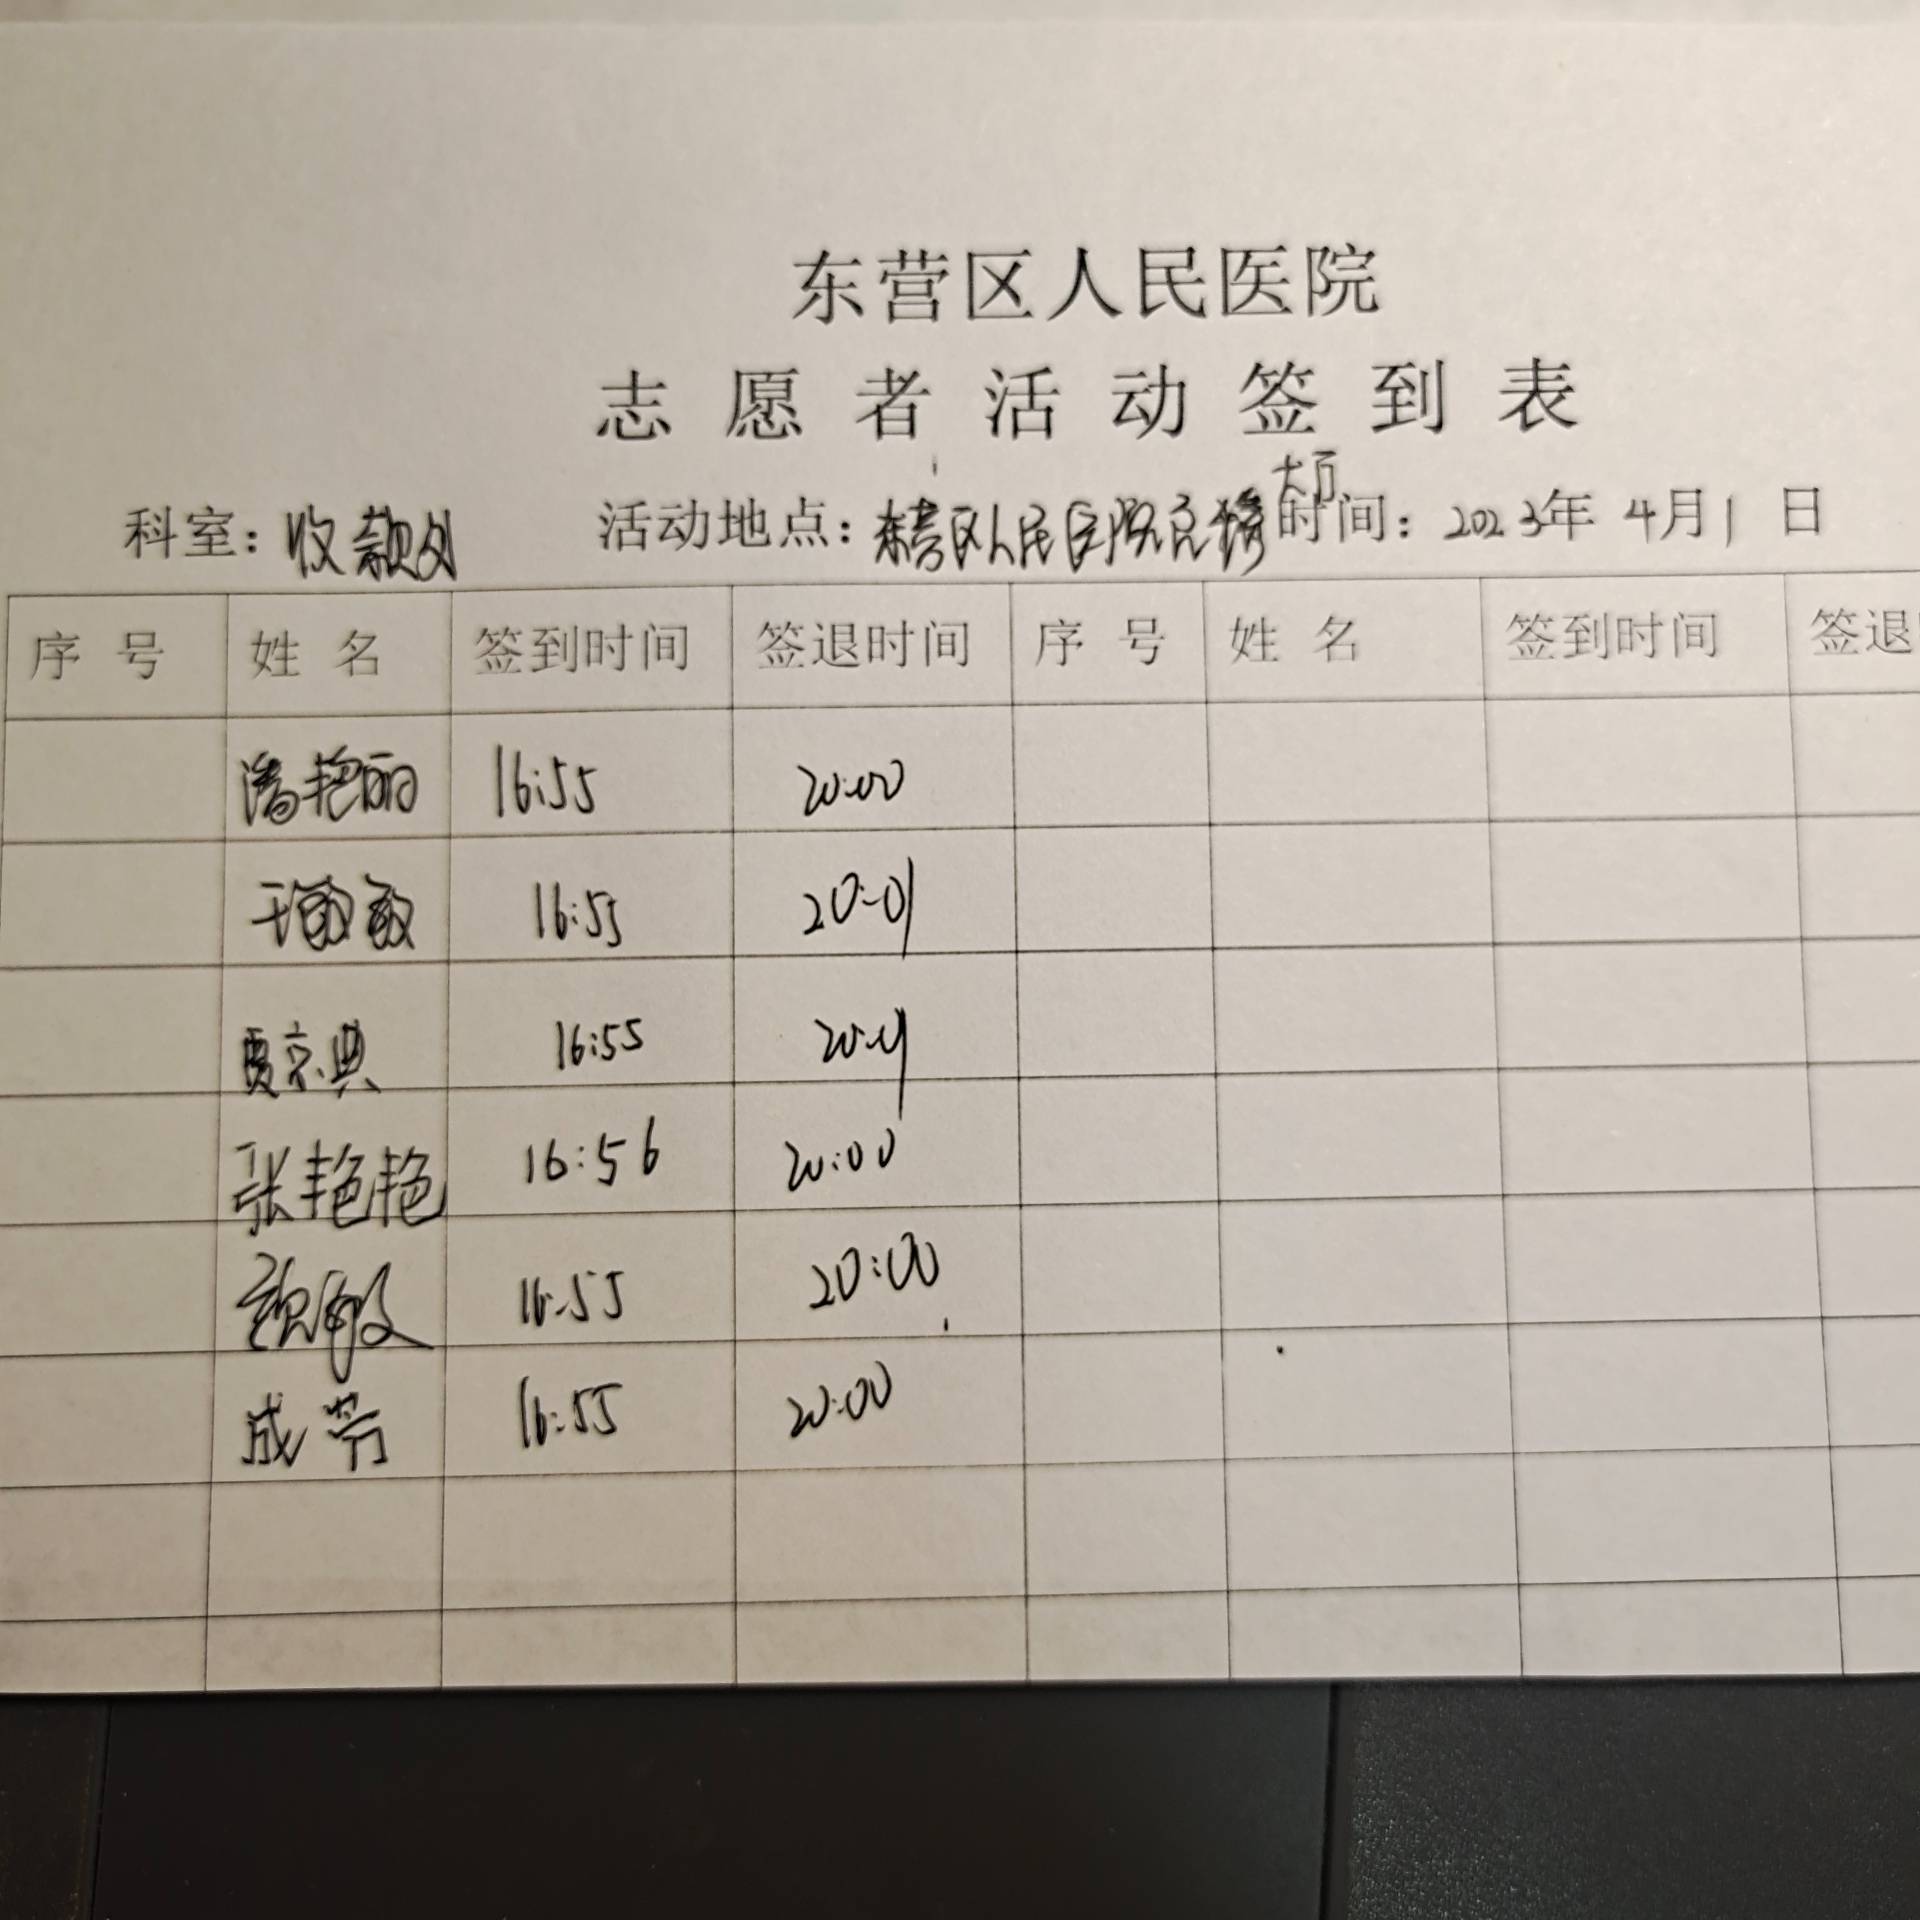 东营区人民医院
志愿者活动签到表
大厅
科室：收款处 活动地点：东营区人民医院 时间：2023年 4月1 日
序 号 姓 名 签到时间 签退时间 序 号 姓 名 签到时间 签退
潘艳丽 16:55 20:00
于敏敏 16:55 20:01
贾京典 16:55 20:01
张艳艳 16:56 20:00
颜敏 16:55 20:00
成芳 16:55 20:00